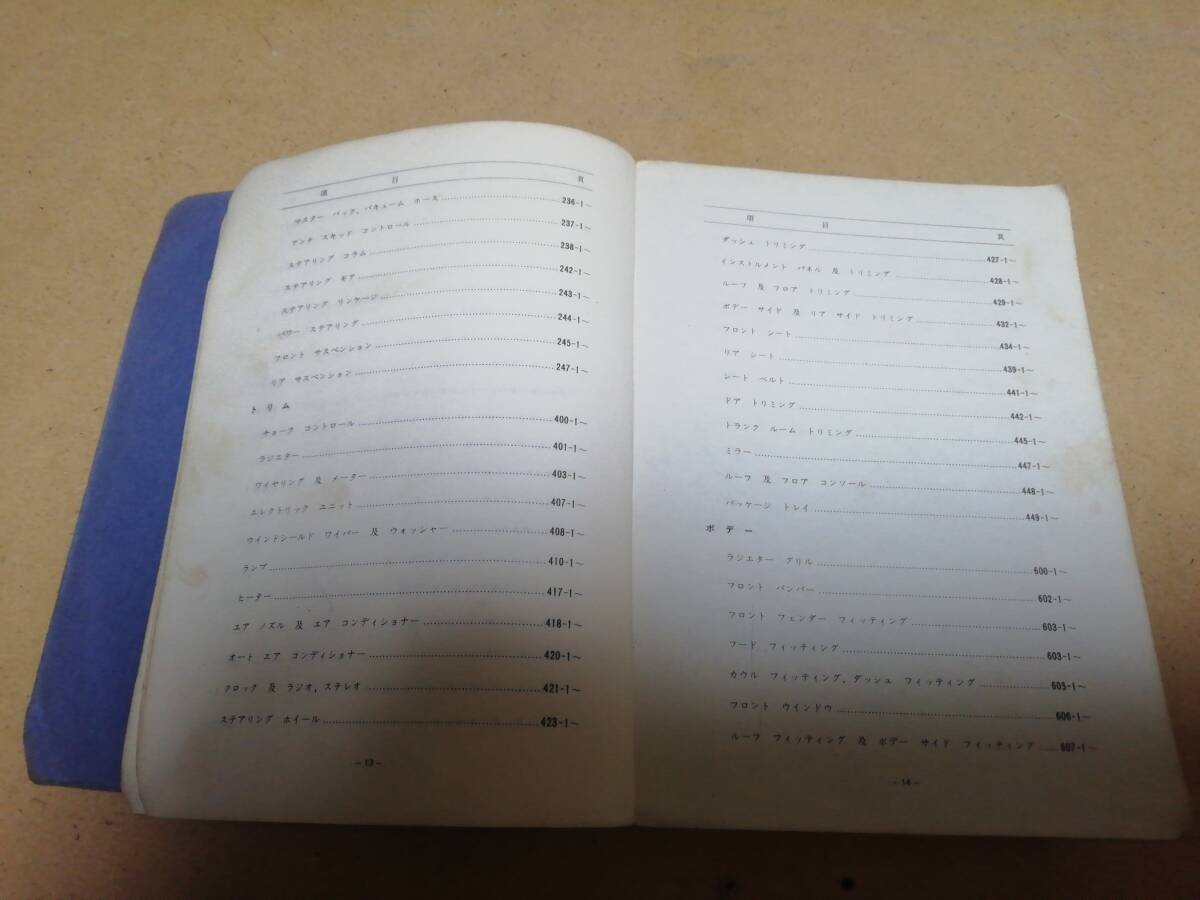 項 目 頁
マスター バック、バキューム ホース 236-1～
アンチ スキッド コントロール 237-1～
ステアリング コラム 238-1～
ステアリング ギア 242-1～
ステアリング リンケージ 243-1～
パワー ステアリング 244-1～
フロント サスペンション 245-1～
リア サスペンション 247-1～
トリム
チョーク コントロール 400-1～
ラジエター 401-1～
ワイヤリング 及 メーター 403-1～
エレクトリック ユニット 407-1～
ウインドシールド ワイパー 及 ウォッシャー 408-1～
ランプ 410-1～
ヒーター 417-1～
エア ノズル 及 エア コンディショナー 418-1～
オート エア コンディショナー 420-1～
クロック 及 ラジオ、ステレオ 421-1～
ステアリング ホイール 423-1～
－13－
項 目 頁
ダッシュ トリミング 427-1～
インストルメント パネル 及 トリミング 428-1～
ルーフ 及 フロア トリミング 429-1～
ボデー サイド 及 リア サイド トリミング 432-1～
フロント シート 434-1～
リア シート 439-1～
シート ベルト 441-1～
ドア トリミング 442-1～
トランク ルーム トリミング 445-1～
ミラー 447-1～
ルーフ 及 フロア コンソール 448-1～
パッケージ トレイ 449-1～
ボデー
ラジエター グリル 600-1～
フロント バンパー 602-1～
フロント フェンダー フィッティング 603-1～
フード フィッティング 603-1～
カウル フィッティング、ダッシュ フィッティング 605-1～
フロント ウインドウ 606-1～
ルーフ フィッティング 及 ボデー サイド フィッティング 607-1～
－14－